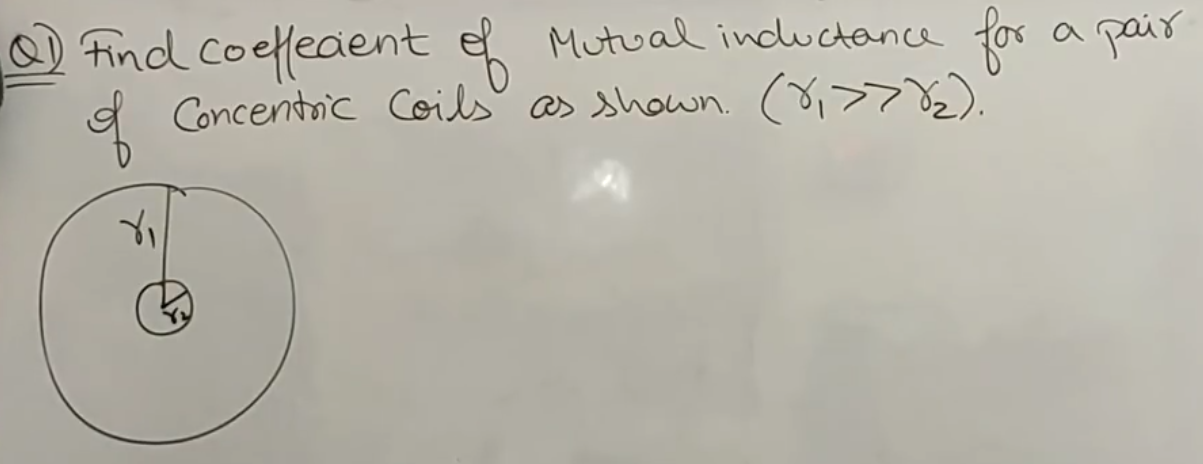 Q1) Find coeffecient of Mutual inductance for a pair
of Concentric Coils as shown. (r₁>>r₂).
r₁
r₂